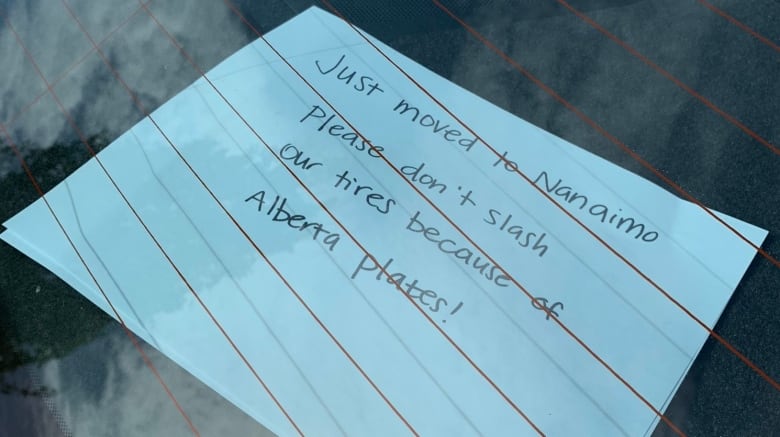 Just moved to Nanaimo
Please don't slash
our tires because of
Alberta plates!